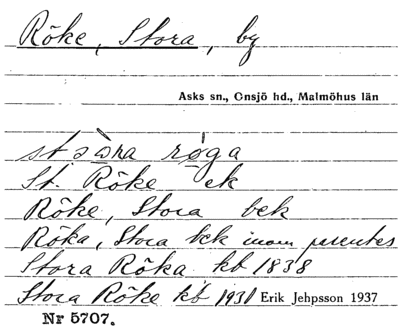 Röke, Stora, by
Asks sn., Onsjö hd., Malmöhus län
röga
St. Röke ek
Röke, Stora bek
Röka, Stora bek inom parentes
Stora Röka kb 1838
Stora Röke kb 1931 Erik Jehpsson 1937
Nr 5707.